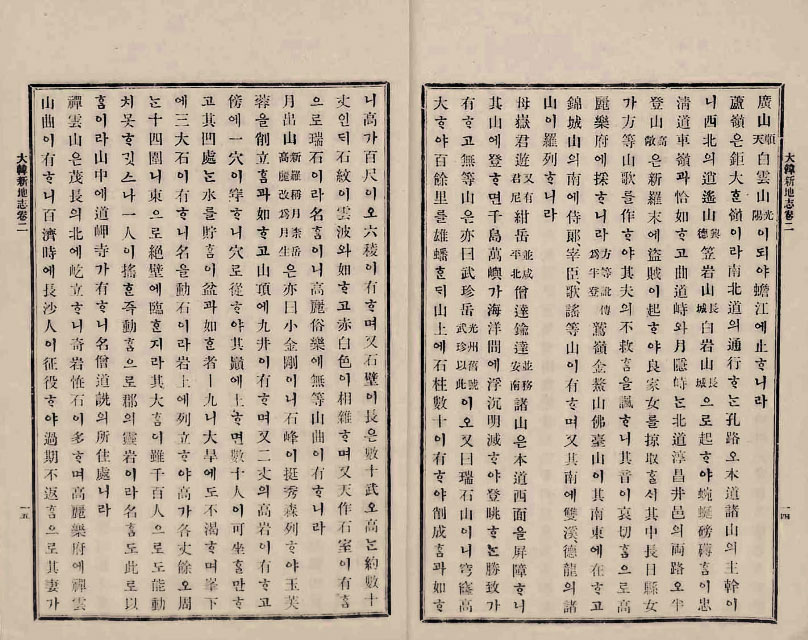 廣山 順天 白雲山 光陽 이되야蟾江에止ᄒᆞ니라
蘆嶺은鉅大ᄒᆞᆫ嶺이라南北道의通行ᄒᆞᄂᆞᆫ孔路오本道諸山의主幹이
니西北의逍遙山 興德 笠岩山 長城 白岩山 長城 으로起ᄒᆞ야蜿蜒磅礴ᄒᆞᆷ이忠
淸道車嶺과恰如ᄒᆞ고曲道峙와月隱峙ᄂᆞᆫ北道淳昌井邑의兩路오半
登山 高敞 은新羅末에盜賊이起ᄒᆞ야良家女를掠取ᄒᆞᆯᄉᆡ其中長日縣女
가方等山歌를作ᄒᆞ야其夫의不救ᄒᆞᆷ을諷ᄒᆞ니其音이哀切ᄒᆞᆷ으로高
麗樂府에採ᄒᆞ니라 方等訛傳爲半登 鷲嶺金鰲山佛臺山이其南東에在ᄒᆞ고
錦城山의南에侍郞、宰臣、歌謠等山이有ᄒᆞ며又其南에雙溪、德龍의諸
山이羅列ᄒᆞ니라
母嶽君遊 又有君尼 紺岳 並咸平北 僧達鍮達 並務安南 諸山은本道西面을屛障ᄒᆞ니
其山에登ᄒᆞ면千島萬嶼가海洋間에浮沉明滅ᄒᆞ야登眺ᄒᆞᄂᆞᆫ勝致가
有ᄒᆞ고無等山은亦曰武珍岳 光州舊號武珍以此 이오又曰瑞石山이니穹窿高
大ᄒᆞ야百餘里를雄蟠ᄒᆞᆫ듸山上에石柱數十이有ᄒᆞ야削成ᄒᆞᆷ과如ᄒᆞ
大韓新地志卷二
一四
니高가百尺이오六稜이有ᄒᆞ며又石壁이長은數十武오高ᄂᆞᆫ約數十
丈인듸石紋이雲波와如ᄒᆞ고赤白色이相雜ᄒᆞ며又天作石室이有ᄒᆞᆷ
으로瑞石이라名ᄒᆞᆷ이니高麗俗樂에無等山曲이有ᄒᆞ니라
月出山 新羅稱月柰岳高麗改爲月生 은亦曰小金剛이니石峰이挺秀森列ᄒᆞ야玉芙
蓉을創立ᄒᆞᆷ과如ᄒᆞ고山項에九井이有ᄒᆞ며又二丈의高岩이有ᄒᆞ고
傍에一穴이穿ᄒᆞ니穴로從ᄒᆞ야其巓에上ᄒᆞ면數十人이可坐ᄒᆞᆯ만ᄒᆞ
고其凹處ᄂᆞᆫ水를貯ᄒᆞᆷ이盆과如ᄒᆞᆫ者ㅣ九니大旱에도不渴ᄒᆞ며峯下
에三大石이有ᄒᆞ니名을動石이라岩上에列立ᄒᆞ야高가各丈餘오周
ᄂᆞᆫ十四圍니東으로絕壁에臨ᄒᆞᆫ지라其大ᄒᆞᆷ이雖千百人으로도能動
치못ᄒᆞᆯ깃스나一人이搖ᄒᆞᆫ즉動ᄒᆞᆷ으로郡의靈岩이라名ᄒᆞᆷ도此로以
ᄒᆞᆷ이라山中에道岬寺가有ᄒᆞ니名僧道詵의所住處니라
禪雲山은茂長의北에屹立ᄒᆞ니奇岩恠石이多ᄒᆞ며高麗樂府에禪雲
山曲이有ᄒᆞ니百濟時에長沙人이征役ᄒᆞ야過期不返ᄒᆞᆷ으로其妻가
大韓新地志卷二
一五